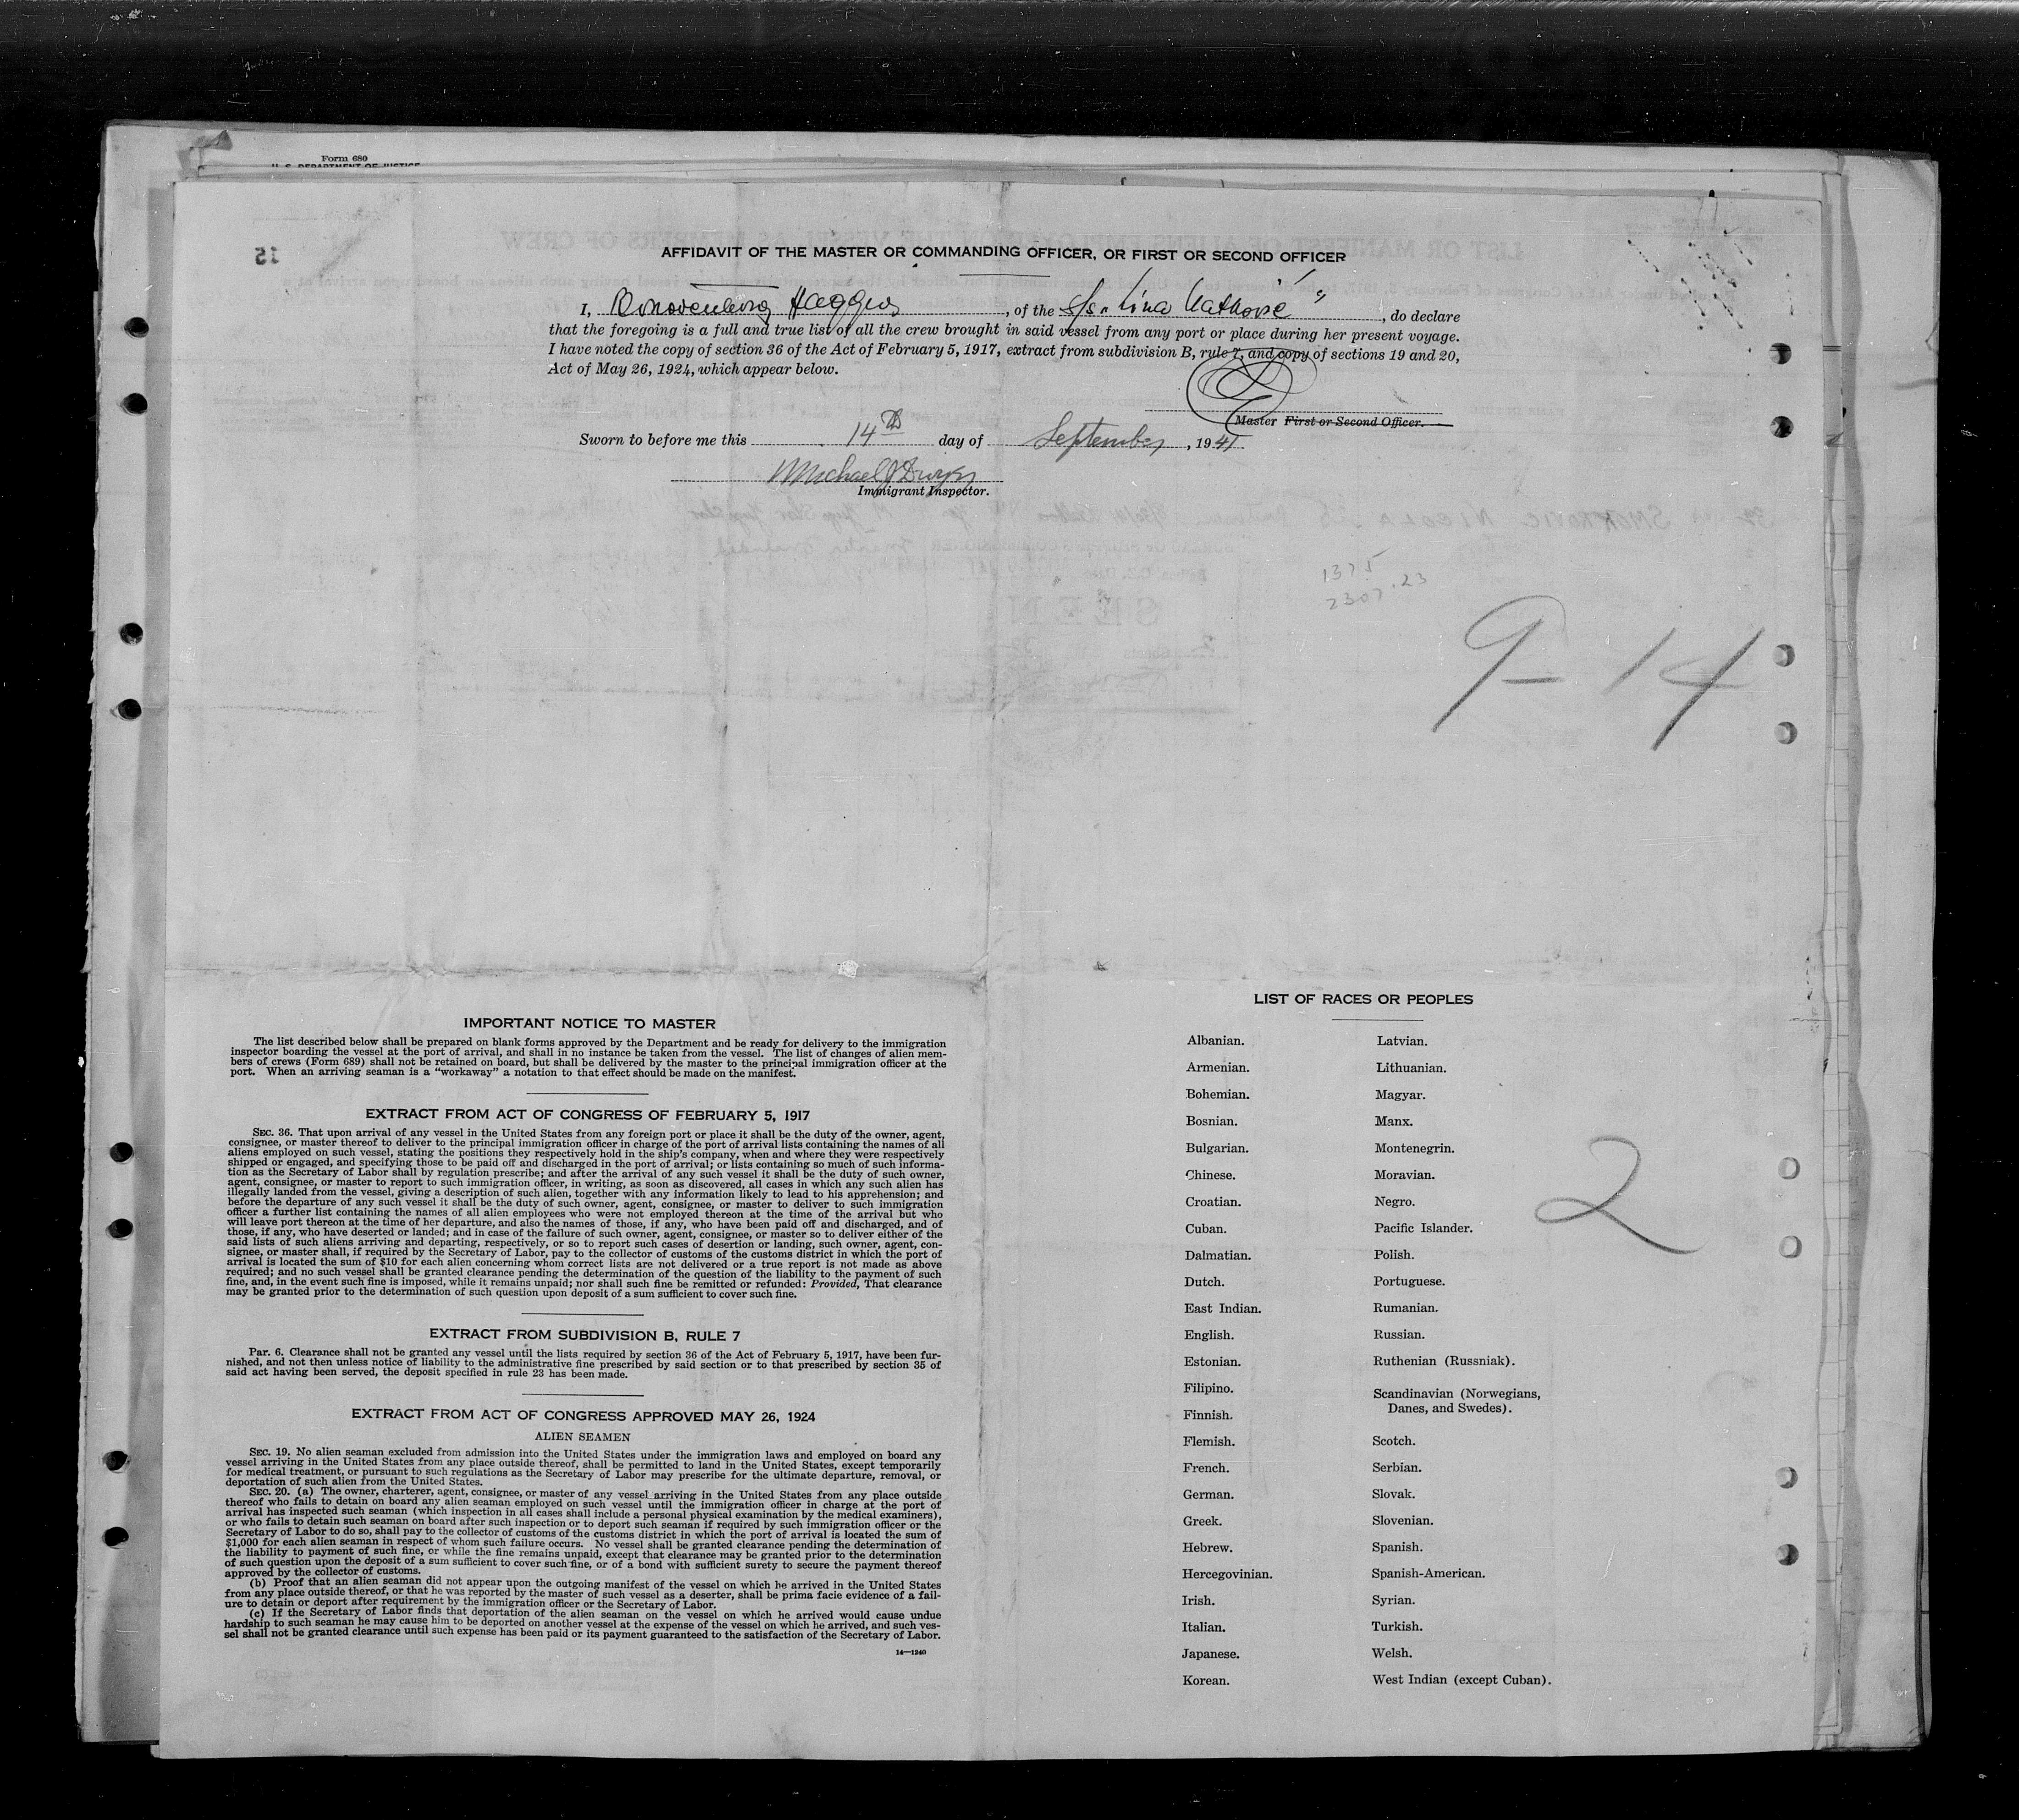 Form 680
U. S. DEPARTMENT OF JUSTICE
15
AFFIDAVIT OF THE MASTER OR COMMANDING OFFICER, OR FIRST OR SECOND OFFICER
I, , of the S/s " ", do declare
that the foregoing is a full and true list of all the crew brought in said vessel from any port or place during her present voyage.
I have noted the copy of section 36 of the Act of February 5, 1917, extract from subdivision B, rule 7, and copy of sections 19 and 20,
Act of May 26, 1924, which appear below.
Master First or Second Officer.
Sworn to before me this 14th day of September, 1941
Michael J
Immigrant Inspector.
1375
2307.23
9-14
IMPORTANT NOTICE TO MASTER
The list described below shall be prepared on blank forms approved by the Department and be ready for delivery to the immigration
inspector boarding the vessel at the port of arrival, and shall in no instance be taken from the vessel. The list of changes of alien mem-
bers of crews (Form 689) shall not be retained on board, but shall be delivered by the master to the principal immigration officer at the
port. When an arriving seaman is a "workaway" a notation to that effect should be made on the manifest.
EXTRACT FROM ACT OF CONGRESS OF FEBRUARY 5, 1917
SEC. 36. That upon arrival of any vessel in the United States from any foreign port or place it shall be the duty of the owner, agent,
consignee, or master thereof to deliver to the principal immigration officer in charge of the port of arrival lists containing the names of all
aliens employed on such vessel, stating the positions they respectively hold in the ship's company, when and where they were respectively
shipped or engaged, and specifying those to be paid off and discharged in the port of arrival; or lists containing so much of such informa-
tion as the Secretary of Labor shall by regulation prescribe; and after the arrival of any such vessel it shall be the duty of such owner,
agent, consignee, or master to report to such immigration officer, in writing, as soon as discovered, all cases in which any such alien has
illegally landed from the vessel, giving a description of such alien, together with any information likely to lead to his apprehension; and
before the departure of any such vessel it shall be the duty of such owner, agent, consignee, or master to deliver to such immigration
officer a further list containing the names of all alien employees who were not employed thereon at the time of the arrival but who
will leave port thereon at the time of her departure, and also the names of those, if any, who have been paid off and discharged, and of
those, if any, who have deserted or landed; and in case of the failure of such owner, agent, consignee, or master so to deliver either of the
said lists of such aliens arriving and departing, respectively, or so to report such cases of desertion or landing, such owner, agent, con-
signee, or master shall, if required by the Secretary of Labor, pay to the collector of customs of the customs district in which the port of
arrival is located the sum of $10 for each alien concerning whom correct lists are not delivered or a true report is not made as above
required; and no such vessel shall be granted clearance pending the determination of the question of the liability to the payment of such
fine, and, in the event such fine is imposed, while it remains unpaid; nor shall such fine be remitted or refunded: Provided, That clearance
may be granted prior to the determination of such question upon deposit of a sum sufficient to cover such fine.
EXTRACT FROM SUBDIVISION B, RULE 7
Par. 6. Clearance shall not be granted any vessel until the lists required by section 36 of the Act of February 5, 1917, have been fur-
nished, and not then unless notice of liability to the administrative fine prescribed by said section or to that prescribed by section 35 of
said act having been served, the deposit specified in rule 23 has been made.
EXTRACT FROM ACT OF CONGRESS APPROVED MAY 26, 1924
ALIEN SEAMEN
SEC. 19. No alien seaman excluded from admission into the United States under the immigration laws and employed on board any
vessel arriving in the United States from any place outside thereof, shall be permitted to land in the United States, except temporarily
for medical treatment, or pursuant to such regulations as the Secretary of Labor may prescribe for the ultimate departure, removal, or
deportation of such alien from the United States.
SEC. 20. (a) The owner, charterer, agent, consignee, or master of any vessel arriving in the United States from any place outside
thereof who fails to detain on board any alien seaman employed on such vessel until the immigration officer in charge at the port of
arrival has inspected such seaman (which inspection in all cases shall include a personal physical examination by the medical examiners),
or who fails to detain such seaman on board after such inspection or to deport such seaman if required by such immigration officer or the
Secretary of Labor to do so, shall pay to the collector of customs of the customs district in which the port of arrival is located the sum of
$1,000 for each alien seaman in respect of whom such failure occurs. No vessel shall be granted clearance pending the determination of
the liability to payment of such fine, or while the fine remains unpaid, except that clearance may be granted prior to the determination
of such question upon the deposit of a sum sufficient to cover such fine, or of a bond with sufficient surety to secure the payment thereof
approved by the collector of customs.
(b) Proof that an alien seaman did not appear upon the outgoing manifest of the vessel on which he arrived in the United States
from any place outside thereof, or that he was reported by the master of such vessel as a deserter, shall be prima facie evidence of a fail-
ure to detain or deport after requirement by the immigration officer or the Secretary of Labor.
(c) If the Secretary of Labor finds that deportation of the alien seaman on the vessel on which he arrived would cause undue
hardship to such seaman he may cause him to be deported on another vessel at the expense of the vessel on which he arrived, and such ves-
sel shall not be granted clearance until such expense has been paid or its payment guaranteed to the satisfaction of the Secretary of Labor.
14—1240
LIST OF RACES OR PEOPLES
Albanian.
Armenian.
Bohemian.
Bosnian.
Bulgarian.
Chinese.
Croatian.
Cuban.
Dalmatian.
Dutch.
East Indian.
English.
Estonian.
Filipino.
Finnish.
Flemish.
French.
German.
Greek.
Hebrew.
Hercegovinian.
Irish.
Italian.
Japanese.
Korean.
Latvian.
Lithuanian.
Magyar.
Manx.
Montenegrin.
Moravian.
Negro.
Pacific Islander.
Polish.
Portuguese.
Rumanian.
Russian.
Ruthenian (Russniak).
Scandinavian (Norwegians,
Danes, and Swedes).
Scotch.
Serbian.
Slovak.
Slovenian.
Spanish.
Spanish-American.
Syrian.
Turkish.
Welsh.
West Indian (except Cuban).
2